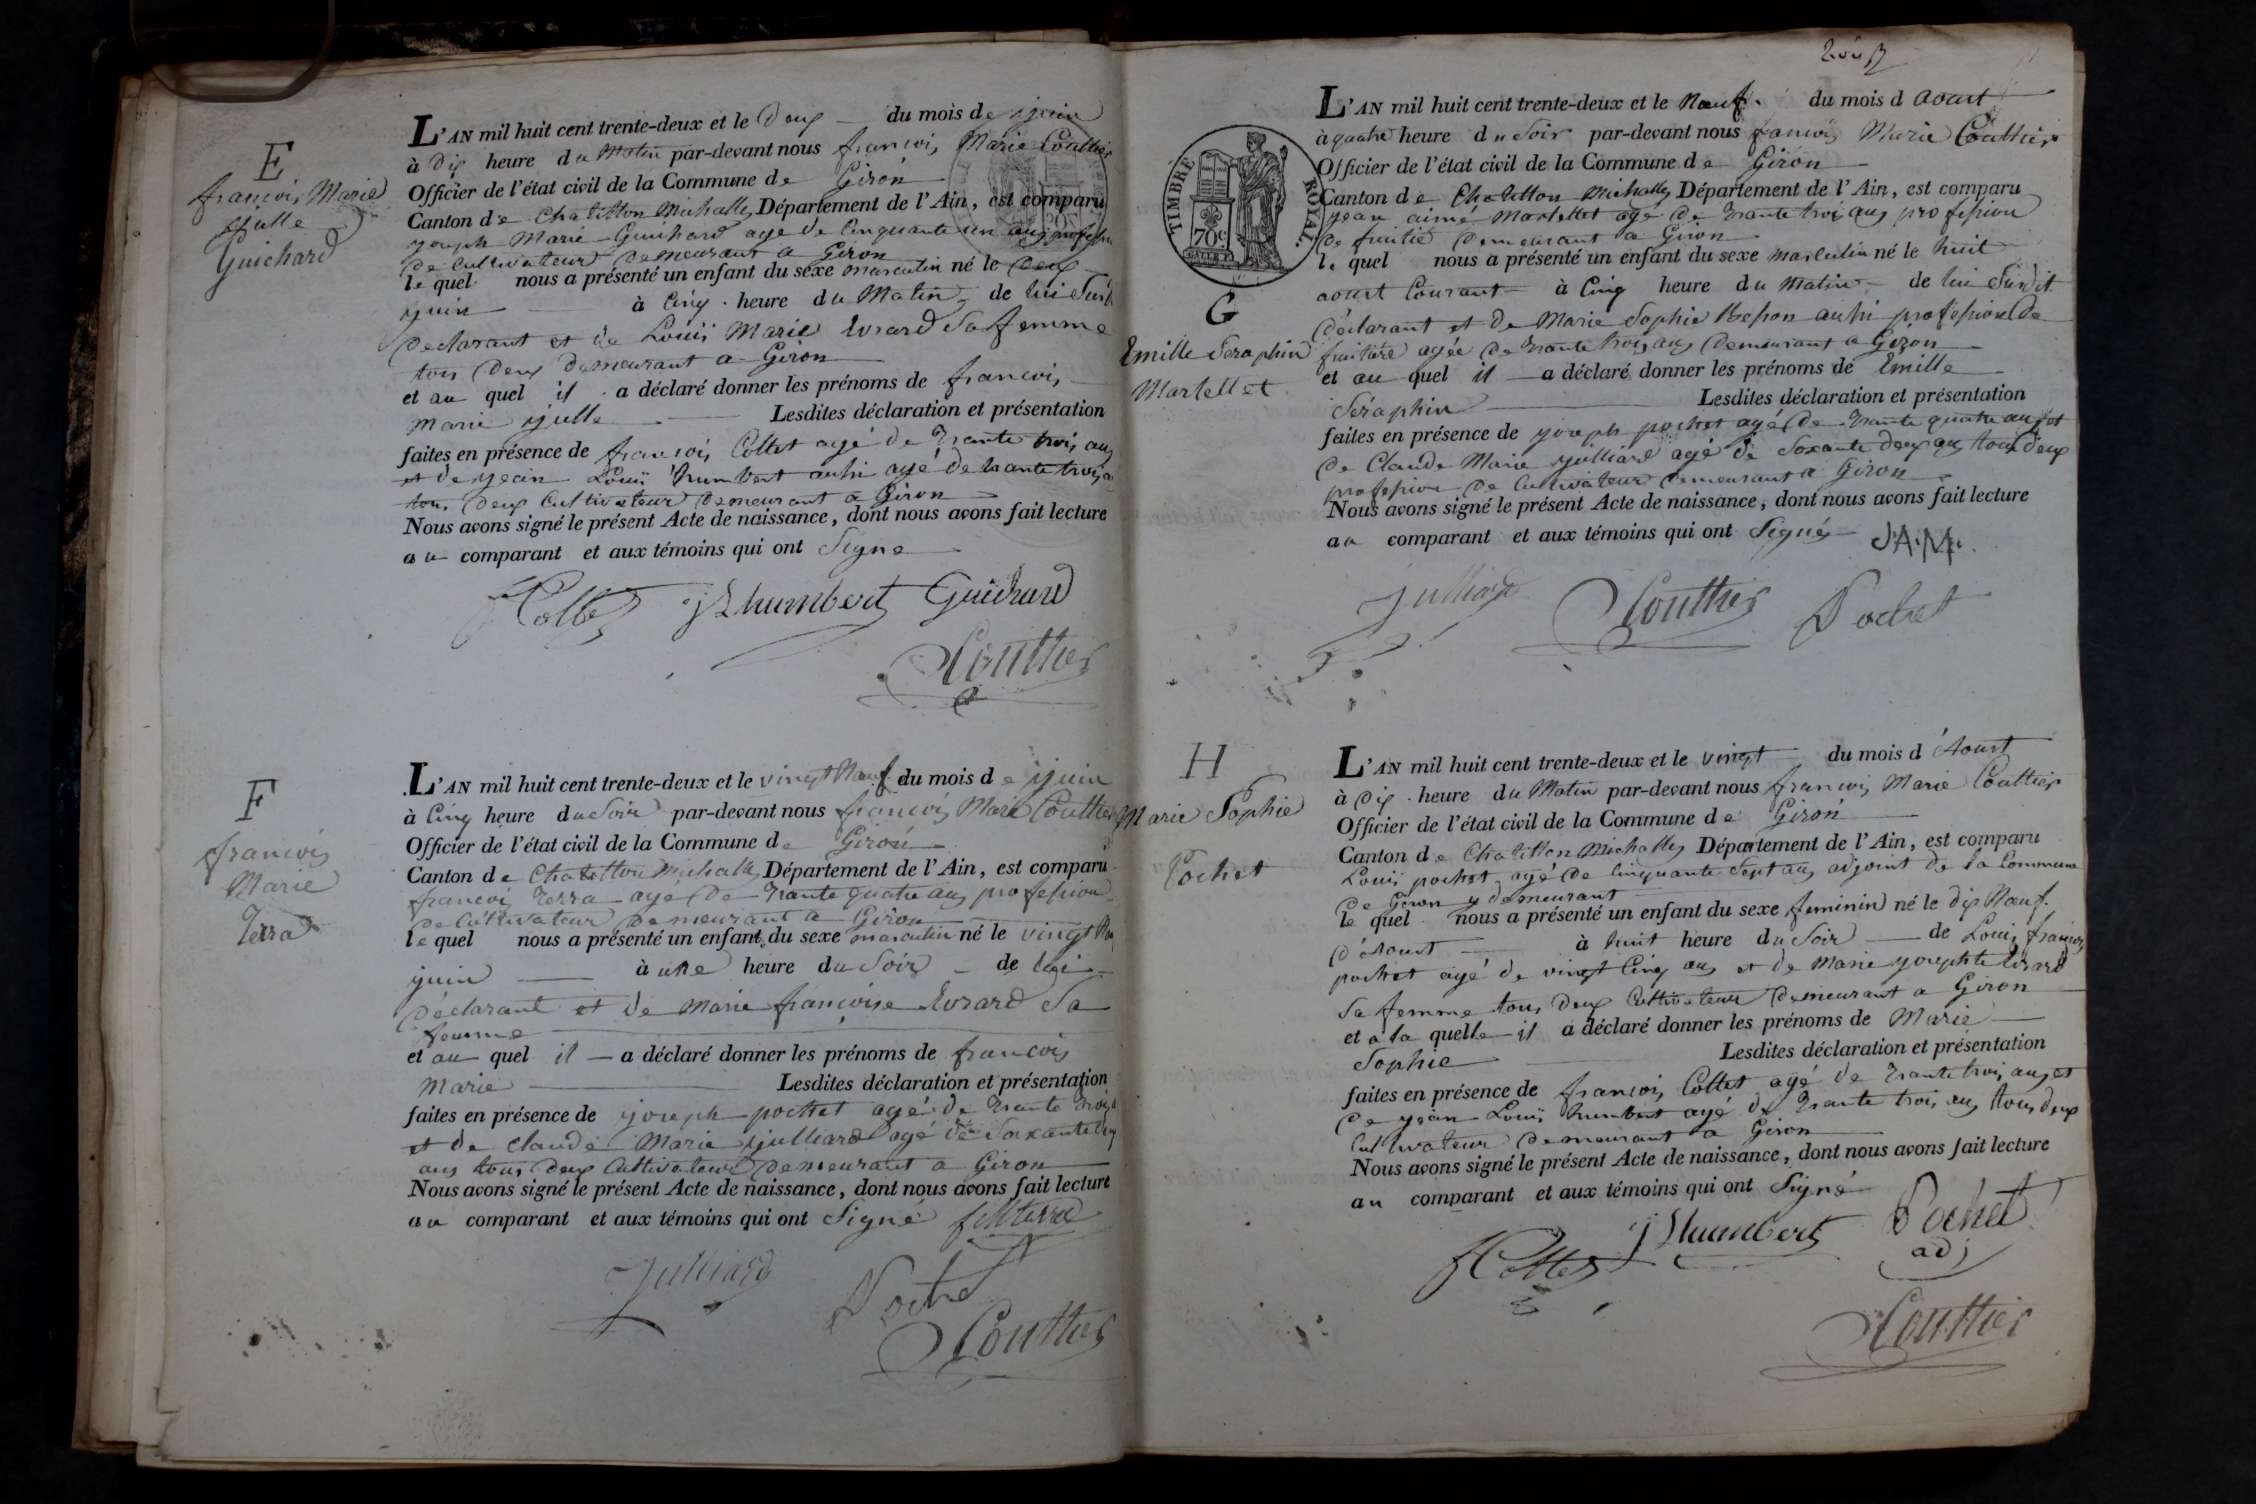 E
françois Marie
Julle
Guichard
L'AN mil huit cent trente-deux et le Deux du mois de juin
à Dix heure du Matin par-devant nous françois Marie Coutthier
Officier de l'état civil de la Commune de Giron
Canton de Chatillon Michalle Département de l'Ain, est comparu
joseph Marie Guichard age de Cinquante un ans profession
de Cultivateur Demeurant a Giron
le quel nous a présenté un enfant du sexe masculin né le Deux
juin à Cinq heure du Matin de lui Susdit
Declarant et de Louïs Marie Evrard Sa femme
tous Deux Demeurant a Giron
et au quel il a déclaré donner les prénoms de françois
Marie julle Lesdites déclaration et présentation
faites en présence de françois Collet agé de Trante trois ans
et de jean Louïs humbert aussi agé de trante trois ans
tous Deux Cultivateur Demeurant a Giron
Nous avons signé le présent Acte de naissance, dont nous avons fait lecture
au comparant et aux témoins qui ont Signe
fColles JLhumbert Guichard
Coutthier
F
françois
Marie
Terra
L'AN mil huit cent trente-deux et le vingt Nauf du mois de juin
à Cinq heure du Soir par-devant nous françois Marie Coutthier
Officier de l'état civil de la Commune de Giron
Canton de Chatillon Michalle Département de l'Ain, est comparu
françois Terra agé De Trante quatre ans profession
de Cultivateur Demeurant a Giron
le quel nous a présenté un enfant du sexe masculin né le vingt
juin à une heure du Soir de lui
Déclarant et de Marie françoise Evrard Sa
femme
et au quel il a déclaré donner les prénoms de françois
Marie Lesdites déclaration et présentation
faites en présence de joseph pochet agé de Trante
et de Claude Marie julliard agé de Soxante Deux
ans tous Deux Cultivateur Demeurant a Giron
Nous avons signé le présent Acte de naissance, dont nous avons fait lecture
au comparant et aux témoins qui ont Signé fMterra
Julliard Pochet
Coutthier
TIMBRE ROYAL.
70c
G
Emille Seraphin
Martellet
L'AN mil huit cent trente-deux et le Nauf du mois d Aoust
à quatre heure du Soir par-devant nous françois Marie Coutthier
Officier de l'état civil de la Commune de Giron
Canton de Chatillon Michalle Département de l'Ain, est comparu
jean aimé Martellet agé De Trante trois ans profession
De fruitié Demeurant a Giron
le quel nous a présenté un enfant du sexe masculin né le huit
aoust Courant à Cinq heure du Matin de lui Susdit
Déclarant et de Marie Sophie aussi profession De
fruitière agée De trante trois ans Demeurant a Giron
et au quel il a déclaré donner les prénoms de Emille
Séraphin Lesdites déclaration et présentation
faites en présence de joseph pochet agé De Trante quatre ans et
De Claude Marie julliard agé de Soxante deux ans tous deux
profession de Cultivateur Demeurant a Giron
Nous avons signé le présent Acte de naissance, dont nous avons fait lecture
au comparant et aux témoins qui ont Signés J.A.M.
Julliard Coutthier Pochet
H
Marie Sophie
Pochet
L'AN mil huit cent trente-deux et le vingt du mois d'Aoust
à Dix heure du Matin par-devant nous françois Marie Coutthier
Officier de l'état civil de la Commune de Giron
Canton de Chatillon Michalle Département de l'Ain, est comparu
Louïs pochet agé De Cinquante Sept ans adjoint de la Commune
De Giron y demeurant
le quel nous a présenté un enfant du sexe feminin né le dix Nauf
d'Aoust à huit heure du Soir de Louis françois
pochet agé de vingt Cinq ans et de Marie josephte Evrard
Sa femme tous Deux Cultivateur Demeurant a Giron
et a la quelle il a déclaré donner les prénoms de Marie
Sophie Lesdites déclaration et présentation
faites en présence de françois Collet agé de Trante trois ans et
De jean Louïs humbert agé de Trante trois ans tous deux
Cultivateur Demeurant a Giron
Nous avons signé le présent Acte de naissance, dont nous avons fait lecture
au comparant et aux témoins qui ont Signé
fColles JLhumbert Pochet
adj
Coutthier